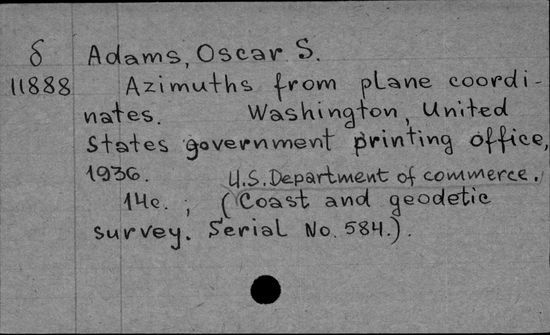 б Adams, Oscar S.
11888 Azimuths from plane coordi-
nates. Washington, United
States government printing office,
1936. U.S. Department of commerce.
14c.; (Coast and geodetic
survey. Serial No. 584.).